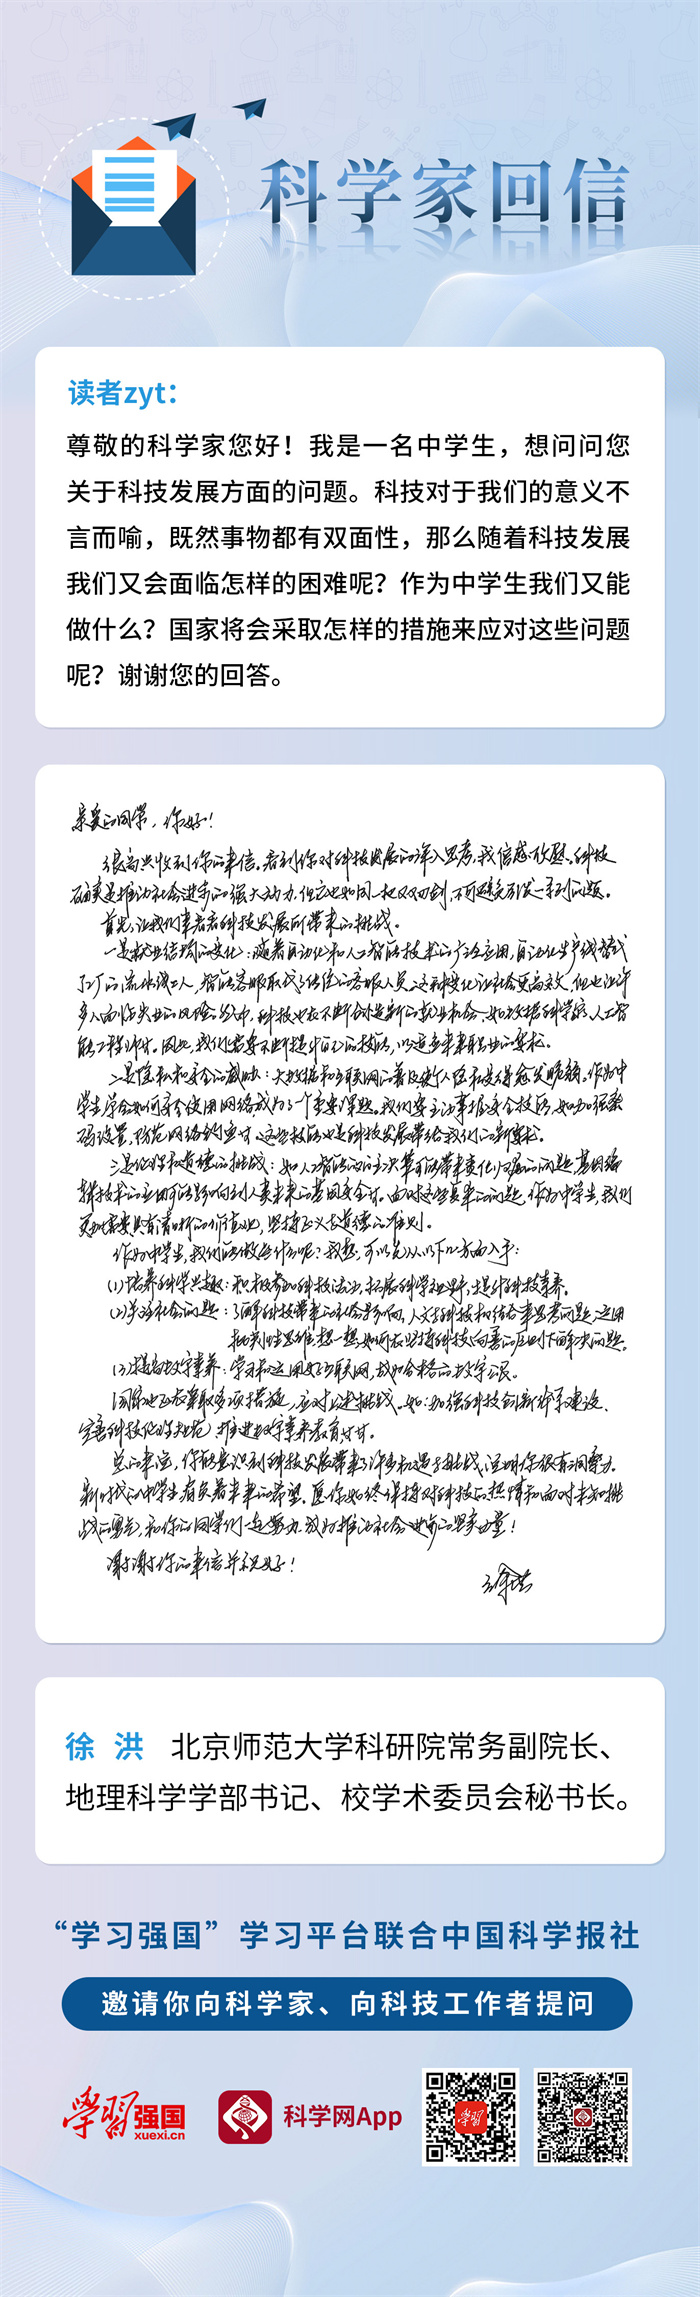 科学家回信
读者zyt：
尊敬的科学家您好！我是一名中学生，想问问您
关于科技发展方面的问题。科技对于我们的意义不
言而喻，既然事物都有双面性，那么随着科技发展
我们又会面临怎样的困难呢？作为中学生我们又能
做什么？国家将会采取怎样的措施来应对这些问题
呢？谢谢您的回答。
亲爱的同学，你好！
很高兴收到你的来信。看到你对科技发展的深入思考，我倍感欣慰。科技
确实是推动社会进步的强大动力，但它也如同一把双刃剑，不可避免引发一系列问题。
首先，让我们来看看科技发展所带来的挑战。
一是就业结构的变化：随着自动化和人工智能技术的广泛应用，自动化生产线替代
了工厂的流水线工人，智能客服取代了传统的客服人员。这种变化让社会更高效，但也让许
多人面临失业的风险。当中，科技也在不断创造新的就业机会，如数据科学家、人工智
能工程师等。因此，我们需要不断提升自己的技能，以适应未来职业的要求。
二是隐私和安全的威胁：大数据和互联网的普及使个人隐私变得愈发脆弱。作为中
学生学会如何安全使用网络成为了一个重要课题。我们要主动掌握安全技能，如加强密
码设置，防范网络钓鱼等。这些技能也是科技发展带给我们的新要求。
三是伦理和道德的挑战：如人工智能的自主决策可能带来责任归属的问题，基因编
辑技术的应用可能影响到人类未来的基因安全等。面对这些复杂的问题，作为中学生，我们
更加需要具有清晰的价值观，坚持正义与道德的准则。
作为中学生，我们能做些什么呢？我想，可以先从以下几方面入手：
(1)培养科学兴趣：积极参加科技活动，拓展科学视野，提升科技素养。
(2)关注社会问题：了解科技带来的社会影响，人文与科技相结合来思考问题，运用
批判性思维想一想如何在坚持科技向善的原则下解决问题。
(3)提高数字素养：学习和运用好互联网，成为合格的数字公民。
国家也正在采取多项措施，应对上述挑战。如：加强科技创新体系建设、
完善科技伦理规范、推进数字素养教育等等。
总的来说，你能意识到科技发展带来了许多机遇与挑战，说明你很有洞察力。
新时代的中学生肩负着未来的希望。愿你始终保持对科技的热情和面对未知挑
战的勇气，和你的同学们一起努力，成为推动社会进步的坚实力量！
谢谢你的来信并祝好！
徐洪
徐 洪 北京师范大学科研院常务副院长、
地理科学学部书记、校学术委员会秘书长。
“学习强国”学习平台联合中国科学报社
邀请你向科学家、向科技工作者提问
学习强国
xuexi.cn
科学网App